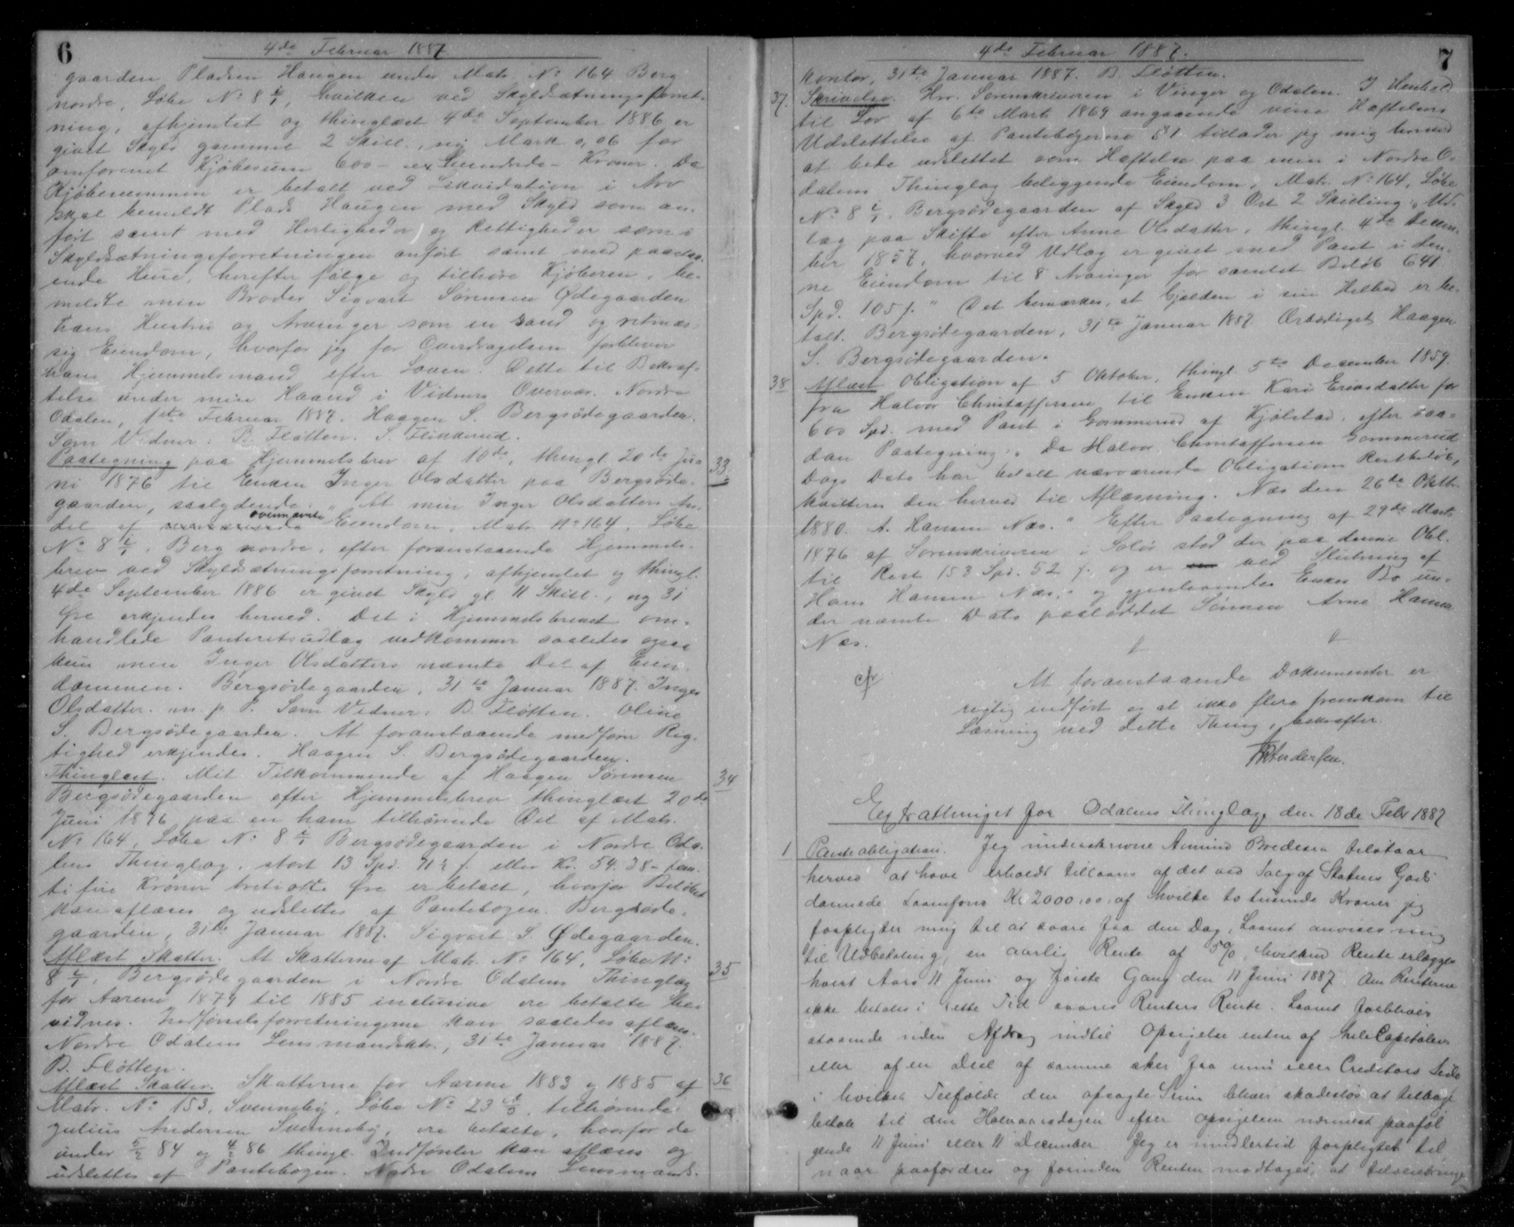 6
4de Februar 1887
gaarden Pladsen Haugen under Matr. No 164 Berg
nordre, Løbe No 8 c/1, hvilken ved Skyldsætningsforret-
ning, afhjemlet og thinglæst 4de September 1886 er
givet Skyld gammel 2 Skill., ny Mark 0,06 for
omforenet Kjøbesum 600 - sex hundrede - Kroner. Da
Kjøbesummen er betalt ved Likvidation i Arv
skal bemeldt Plads Haugen med Skyld som an-
ført samt med Herligheder og Rettigheder som i
Skyldsætningsforretningen anført samt med paastaa-
ende Huse, herefter følge og tilhøre Kjøberen, be-
meldte min Broder Sigvart Sørensen Ødegaarden
hans Hustru og Arvinger som en sand og retmæs-
sig Eiendom, hvorfor jeg for Overdragelsen forbliver
hans Hjemmelsmand efter Loven. Dette til Bekræf-
telse under min Haand i Vidners Overvær. Nordre
Odalen, 1ste Februar 1887. Haagen S. Bergsødegaarden.
Som Vidner: B. Fløtten. S. Flinderud.
Paategning paa Hjemmelsbrev af 10de, thingl. 20de Ju- 33
ni 1876 til Enken Inger Olsdatter paa Bergsøde-
gaarden, saalydende: "At min Inger Olsdatters An-
del af ovennævnte Eiendom, Matr. No 164, Løbe
No 8 c/1, Berg nordre, efter foranstaaende Hjemmels-
brev ved Skyldsætningsforretning, afhjemlet og thingl.
4de September 1886 er givet Skyld gl. 11 Skill., ny 31
Øre erkjendes herved. Det i Hjemmelsbrevet om-
handlede Panteretsudlæg vedkommer saaledes ogsaa
kun min Inger Olsdatters nævnte Del af Eien-
dommen. Bergsødegaarden, 31te Januar 1887. Inger
Olsdatter. m. p. P. Som Vidner: B. Fløtten. Oline
S. Bergsødegaarden. At foranstaaende medfører Rig-
tighed erkjendes. Haagen S. Bergsødegaarden.
Thinglæst. Mit Tilkommende af Haagen Sørensen 34
Bergsødegaarden efter Hjemmelsbrev thinglæst 20de
Juni 1876 paa en ham tilhørende Del af Matr.
No 164, Løbe No 8 c/1 Bergsødegaarden i Nordre Oda-
lens Thinglag, stort 13 Spd. 71½ f. eller Kr. 54.38 - fem-
ti fire Kroner treti otte Øre er betalt, hvorfor Beløbet
kan aflæses og udslettes af Pantebogen. Bergsøde-
gaarden, 31te Januar 1887. Sigvart S. Ødegaarden.
Aflæst Skatter. At Skatterne af Matr. No 164, Løbe No 35
8 c/1, Bergsødegaarden i Nordre Odalens Thinglag
for Aarene 1874 til 1885 inclusive ere betalte
vidner. Indførselsforretningerne kan saaledes aflæses.
Nordre Odalens Lensmandsktr., 31te Januar 1887.
B. Fløtten.
Aflæst Skatter. Skatterne for Aarene 1883 og 1885 af 36
Matr. No 153, Svenneby, Løbe No 23 tilhørende
Julius Andersen Svenneby, ere betalte, hvorfor de
under 84 og 86 thingl. Indførsler kan aflæses og
udslettes af Pantebogen. Nordre Odalens Lensmands-
7
4de Februar 1887.
kontor, 31te Januar 1887. B. Fløtten.
37. Skrivelse. Hr. Sorenskriveren i Vinger og Odalen. I Henhold
til Lov af 6te Marts 1869 angaaende visse Hæftelsers
Udslettelse af Pantebøgerne § 1 tillader jeg mig herved
at bede udslettet som Hæftelse paa min i Nordre O-
dalens Thinglag beliggende Eiendom, Matr. No 164, Løbe
No 8 c/1, Bergsødegaarden af Skyld 3 Ort 2 Skilling: "Ud-
læg paa Skifte efter Anne Olsdatter, thingl. 4de Decem-
ber 1857, hvorved Udlæg er givet med Pant i den-
ne Eiendom til 8 Arvinger for samlet Beløb 641
Spd. 105 f." Det bemærkes, at Gjælden i sin Helhed er be-
talt. Bergsødegaarden, 31te Januar 1887 Ærbødigst Haagen
S. Bergsødegaarden.
38 Aflæst Obligation af 5 Oktober, thingl. 5te December 1859.
fra Halvor Christoffersen til Enken Kari Ericsdatter for
600 Spd. med Pant i Gommerud af Kjølstad, efter saa-
dan Paategning: "Da Halvor Christoffersen Gommerud
Dags Dato har betalt nærværende Obligations Restbeløb,
kvitteres den herved til Aflæsning. Næs den 26de Oktbr.
1880. A. Hansen Næs." Efter Paategning af 29de Marts
1876 af Sorenskriveren i Solør stod der paa denne Obl.
til Rest 153 Spd. 52 f. og er ved Slutning af
Hans Hansen Næs, og gjenlevendes Enkes Bo un-
der nævnte Dato paaloddet Sønnen Arne Hansen
Næs.
cfr At foranstaaende Dokumenter er
rigtig indført og at ikke flere fremkom til
Læsning ved dette Thing, bekræfter.
Andersen.
Extrathinget for Odalens Thinglag den 18de Febr 1887
1 Panteobligation. Jeg underskrevne Amund Bredesen tilstaar
herved at have erholdt tillaans af det ved Salg af Statens Gods
dannede Laanefond Kr 2000,00, af hvilke to tusinde Kroner jeg
forpligter mig til at svare fra den Dag, Laanet anvises mig
til Udbetaling, en aarlig Rente af 5%, hvilken Rente erlægges
hvert Aars 11 Juni og første Gang den 11 Juni 1887. Om Renterne
ikke betales i rette Tid svares Renters Rente. Laanet forbliver
staaende uden Afdrag indtil Opsigelse enten af hele Capitalen
eller af en Deel af samme sker fra min eller Creditors Side
i hvilket Tilfælde den opsagte Sum bliver skadesløs at tilbage
betale til den Halvaarsdagen efter Opsigelsen nærmest paaføl
gende 11 Juni eller 11 December. Jeg er imidlertid forpligtet til,
naar paafordres og forinden Renten modtages, at tilveiebringe